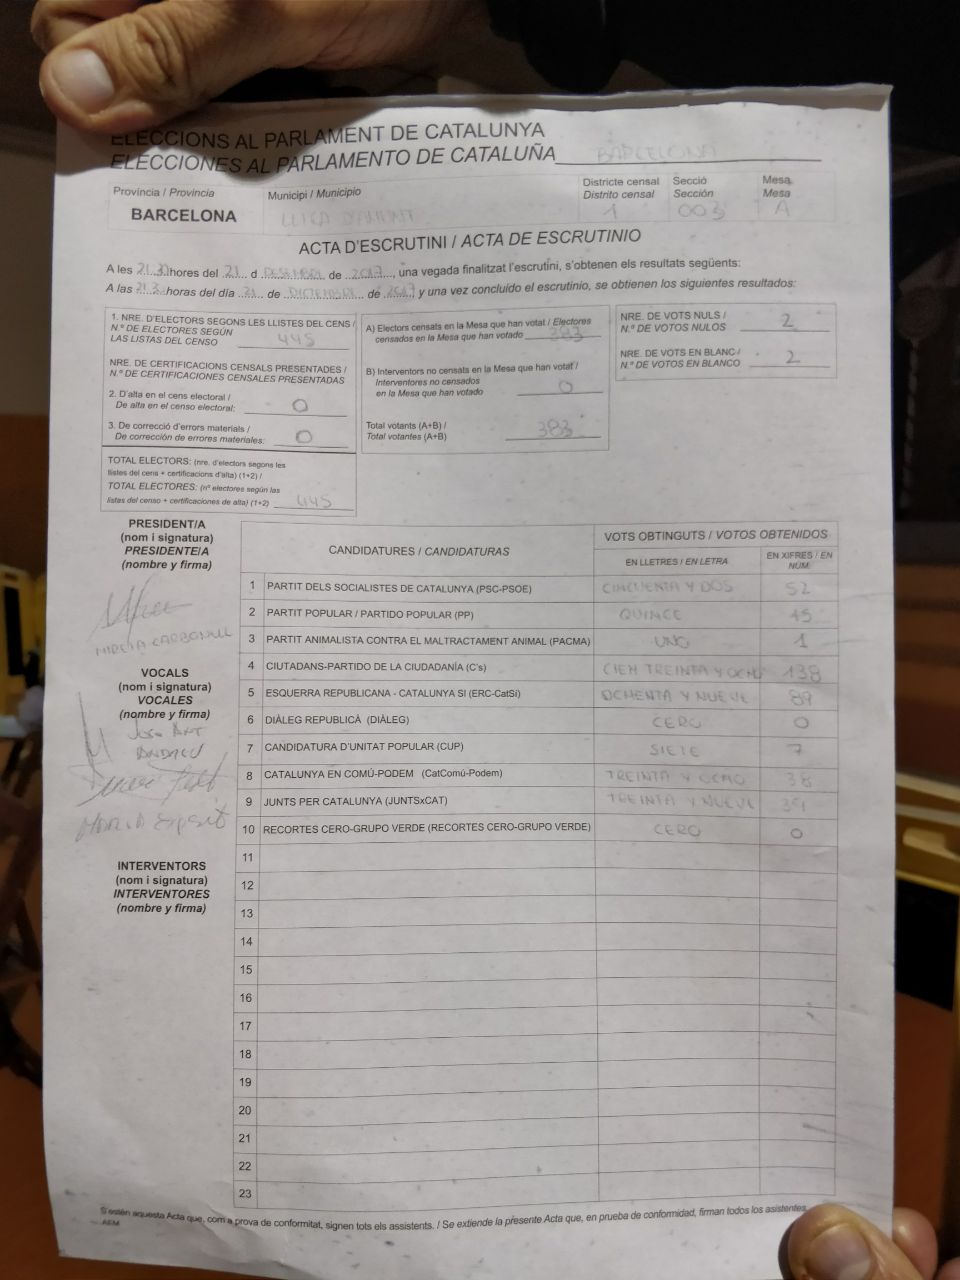 ELECCIONS AL PARLAMENT DE CATALUNYA
ELECCIONES AL PARLAMENTO DE CATALUÑA BARCELONA
Província / Provincia
BARCELONA
Municipi / Municipio
LLIÇÀ D'AMUNT
Districte censal
Distrito censal
1
Secció
Sección
003
Mesa
Mesa
A
ACTA D'ESCRUTINI / ACTA DE ESCRUTINIO
A les 21:30 hores del 21 d DESEMBRE de 2017, una vegada finalitzat l'escrutini, s'obtenen els resultats següents:
A las 21:30 horas del día 21 de DICIEMBRE de 2017 y una vez concluido el escrutinio, se obtienen los siguientes resultados:
1. NRE. D'ELECTORS SEGONS LES LLISTES DEL CENS /
N.º DE ELECTORES SEGÚN
LAS LISTAS DEL CENSO 445
NRE. DE CERTIFICACIONS CENSALS PRESENTADES /
N.º DE CERTIFICACIONES CENSALES PRESENTADAS
2. D'alta en el cens electoral /
De alta en el censo electoral: 0
3. De correcció d'errors materials /
De corrección de errores materiales: 0
TOTAL ELECTORS: (nre. d'electors segons les
llistes del cens + certificacions d'alta) (1+2) /
TOTAL ELECTORES: (nº electores según las
listas del censo + certificaciones de alta) (1+2) 445
A) Electors censats en la Mesa que han votat / Electores
censados en la Mesa que han votado 383
B) Interventors no censats en la Mesa que han votat /
Interventores no censados
en la Mesa que han votado 0
Total votants (A+B) /
Total votantes (A+B) 383
NRE. DE VOTS NULS /
N.º DE VOTOS NULOS 2
NRE. DE VOTS EN BLANC /
N.º DE VOTOS EN BLANCO 2
PRESIDENT/A
(nom i signatura)
PRESIDENTE/A
(nombre y firma)
VOCALS
(nom i signatura)
VOCALES
(nombre y firma)
INTERVENTORS
(nom i signatura)
INTERVENTORES
(nombre y firma)
CANDIDATURES / CANDIDATURAS
VOTS OBTINGUTS / VOTOS OBTENIDOS
EN LLETRES / EN LETRA
EN XIFRES / EN NÚM.
1 PARTIT DELS SOCIALISTES DE CATALUNYA (PSC-PSOE) CINCUENTA Y DOS 52
2 PARTIT POPULAR / PARTIDO POPULAR (PP) QUINCE 15
3 PARTIT ANIMALISTA CONTRA EL MALTRACTAMENT ANIMAL (PACMA) UNO 1
4 CIUTADANS-PARTIDO DE LA CIUDADANÍA (C's) CIEN TREINTA Y OCHO 138
5 ESQUERRA REPUBLICANA - CATALUNYA SI (ERC-CatSí) OCHENTA Y NUEVE 89
6 DIÀLEG REPUBLICÀ (DIÀLEG) CERO 0
7 CANDIDATURA D'UNITAT POPULAR (CUP) SIETE 7
8 CATALUNYA EN COMÚ-PODEM (CatComú-Podem) TREINTA Y OCHO 38
9 JUNTS PER CATALUNYA (JUNTSxCAT) TREINTA Y NUEVE 39
10 RECORTES CERO-GRUPO VERDE (RECORTES CERO-GRUPO VERDE) CERO 0
11
12
13
14
15
16
17
18
19
20
21
22
23
S'estén aquesta Acta que, com a prova de conformitat, signen tots els assistents. / Se extiende la presente Acta que, en prueba de conformidad, firman todos los asistentes.
AEM